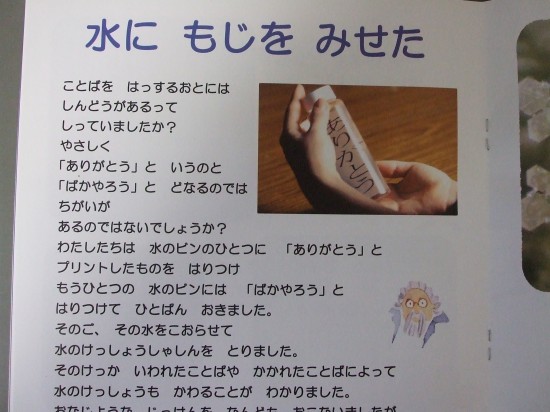 水に もじを みせた
ことばを はっするおとには
しんどうがあるって
しっていましたか?
やさしく
「ありがとう」と いうのと
「ばかやろう」と どなるのでは
ちがいが
あるのではないでしょうか?
わたしたちは 水のビンのひとつに 「ありがとう」と
プリントしたものを はりつけ
もうひとつの 水のビンには 「ばかやろう」と
はりつけて ひとばん おきました。
そのご、その水をこおらせて
水のけっしょうしゃしんを とりました。
そのけっか いわれたことばや かかれたことばによって
水のけっしょうも かわることが わかりました。
おなじような じっけんを なんども おこないましたが
ありがとう